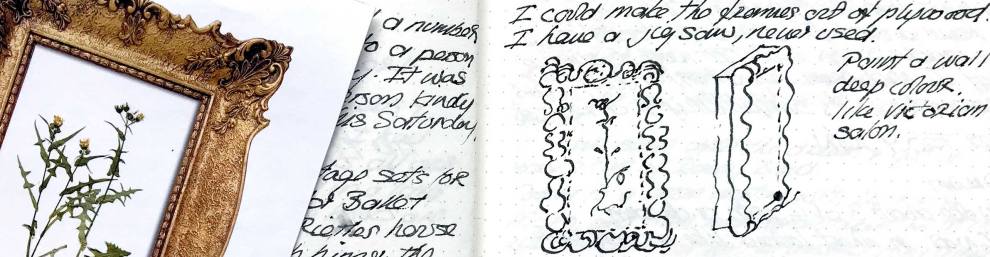 a number
to a person
It was
person kindly
us Saturday,
stage sets for
Ballet
house
I could make the frames out of plywood.
I have a jig saw, never used.
Paint a wall
deep colour.
like victorian
salon.